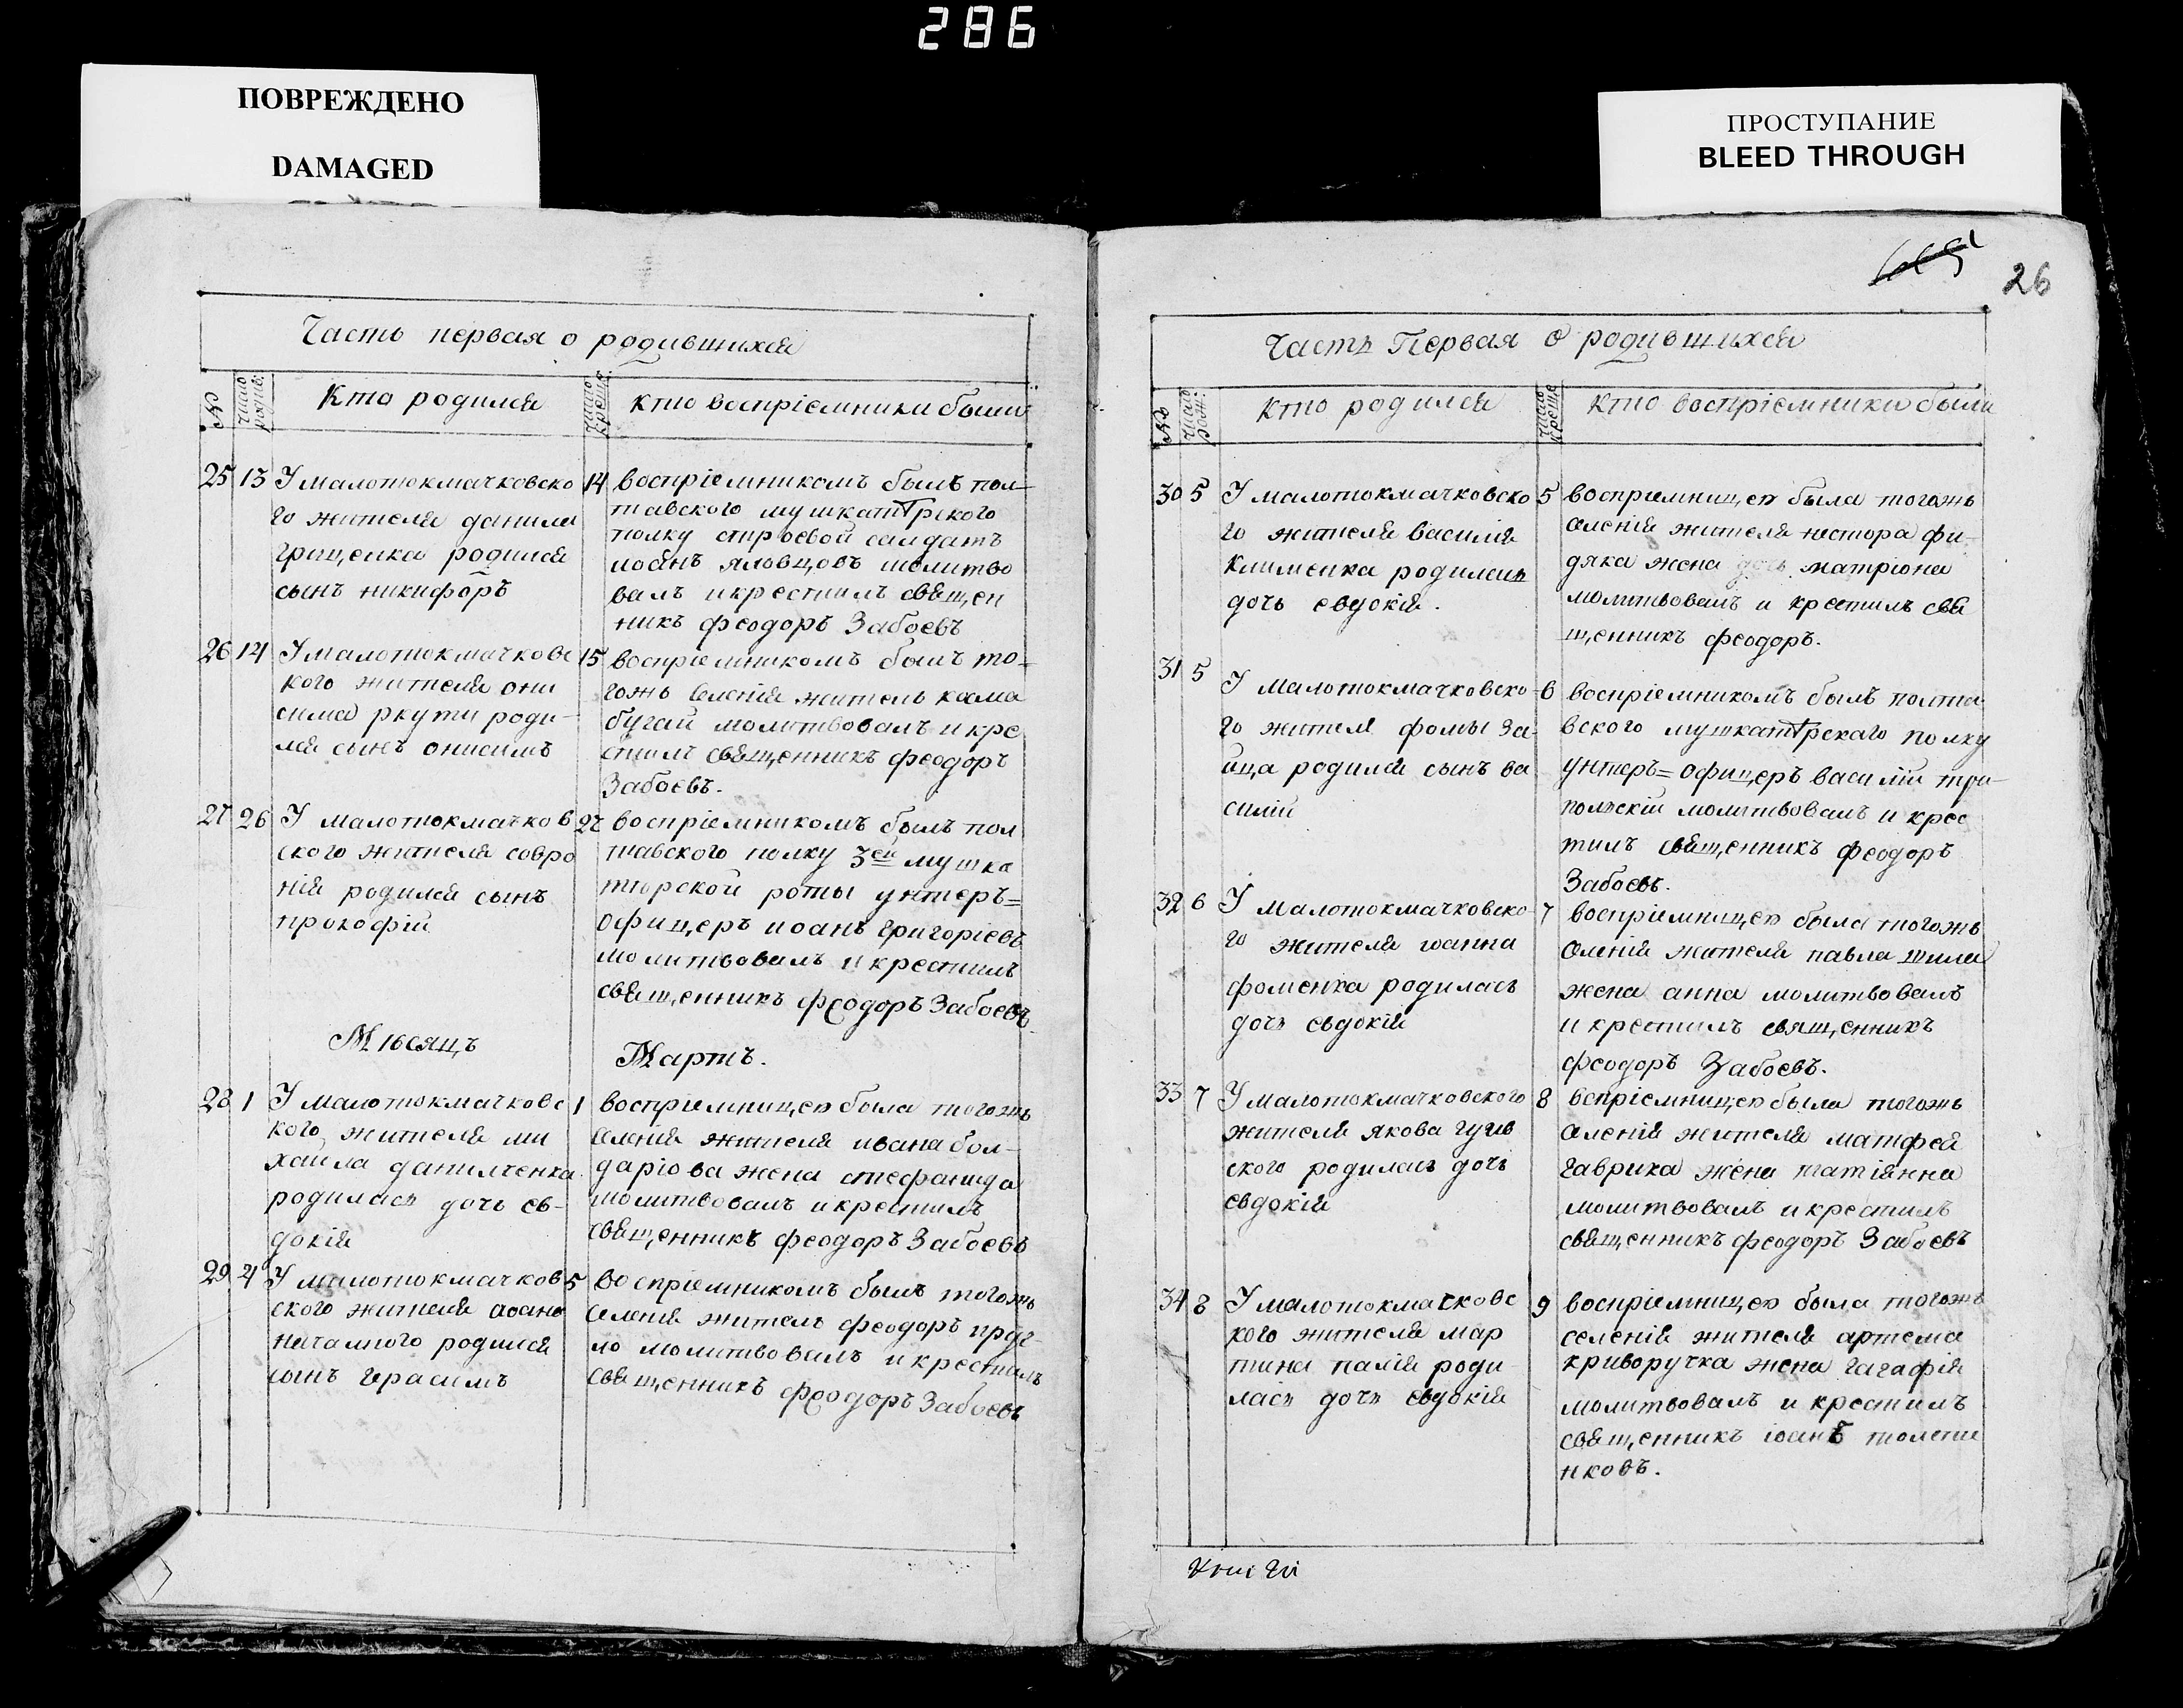 286
ПОВРЕЖДЕНО
DAMAGED
ПРОСТУПАНИЕ
BLEED THROUGH
Часть первая о родившихся
№
число родив:
Кто родился
число креще:
кто воспріемники были
25 13 У малотокмачковско
го жителя данила
грищенка родился
сынъ никифоръ
14 воспріемникомъ былъ пол-
тавского мушкатѣрского
полку строевой салдатъ
иоанъ яловцовъ молитво
валъ и крестилъ священ
никъ феодоръ Забоевъ
26 14 У малотокмачковс
кого жителя они
сима ркути роди-
лся сынъ онисимъ
15 воспріемникомъ былъ то-
гожъ селенія житель козма
бугай молитвовалъ и кре
стилъ священникъ феодоръ
Забоевъ.
27 26 У малотокмачков
ского жителя совро
нія родился сынъ
прокофій
27 воспріемникомъ былъ пол
тавского полку 3ей мушка
тюрской роты унтеръ=
офицеръ иоанъ григоріевъ
молитвовалъ и крестилъ
священникъ феодоръ Забоевъ.
Мѣсяцъ Мартъ.
28 1 У малотокмачковс
кого жителя ми
хаила данилченка
родилась дочь ев-
докія
1 воспріемницею была тогожъ
селенія жителя ивана бол-
даріова жена стефанида
молитвовалъ и крестилъ
священникъ феодоръ Забоевъ
29 4 У малотокмачков
ского жителя иоана
началного родился
сынъ герасимъ
5 воспріемникомъ былъ тогожъ
селенія житель феодоръ
ло молитвовалъ и крестилъ
священникъ феодоръ Забоевъ
26
Часть Первая о родившихся
№
число рож:
кто родился
число креще
кто воспріемники были
30 5 У малотокмачковско
го жителя василія
клименка родилась
дочь евдокія.
5 воспріемницею была тогожъ
селенія жителя нестора фи-
дяка жена матріона
молитвовалъ и крестилъ свя
щенникъ феодоръ.
31 5 У малотокмачковско
го жителя фомы за-
йца родился сынъ ва
силій
6 воспріемникомъ былъ полта
вского мушкатѣрскаго полку
унтеръ=офицеръ василій три-
польскій молитвовалъ и крес
тилъ священникъ феодоръ
Забоевъ.
32 6 У малотокмачковско
го жителя иоанна
фоменка родилась
дочь евдокія
7 воспріемницею была тогожъ
селенія жителя павла шила
жена анна молитвовалъ
и крестилъ священникъ
феодоръ Забоевъ.
33 7 У малотокмачковского
жителя якова гугив
ского родилась дочь
евдокія
8 вспріемницею была тогожъ
селенія жителя матфея
гаврика жена татіянна
молитвовалъ и крестилъ
священникъ феодоръ Забоевъ
34 8 У малотокмачковс
кого жителя мар
тина палія роди
лась дочь евдокія
9 воспріемницею была тогожъ
селенія жителя артема
криворучка жена гагафія
молитвовалъ и крестилъ
священникъ иоанъ толсти
нковъ.